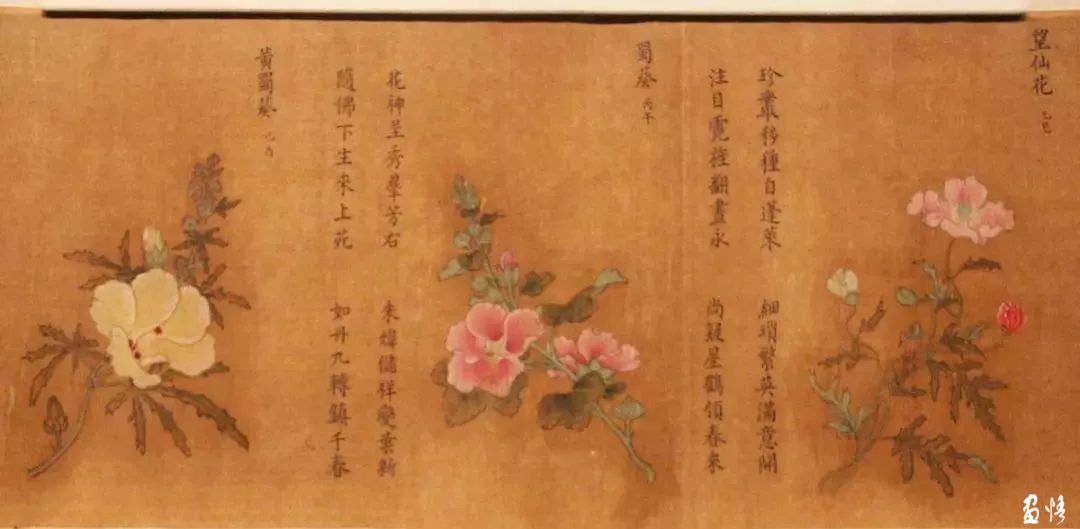 望仙花 乙巳
珍叢移種自蓬萊 細瑣繁英滿意開
注目霓旌翻晝永 尚疑星鶴領春來
蜀葵 丙午
花神呈秀羣芳右 朱煒儲祥變葉新
隨佛下生來上苑 如丹九轉鎮千春
黃蜀葵 己酉